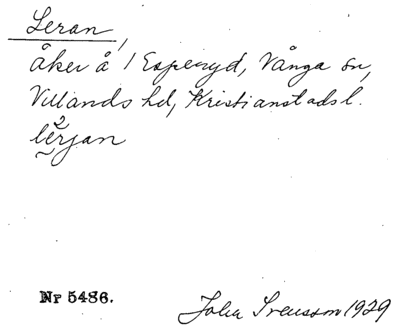 Leran,
åker å 1 Espenyd, Vånga sn,
Villands hd, Kristianstads l.
lerjan
Nr 5486.
Svensson 1929